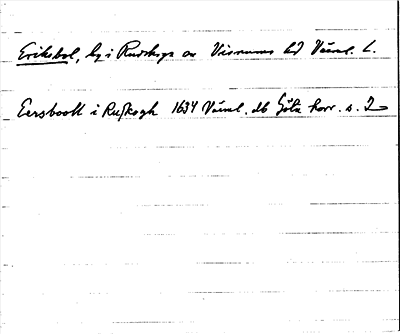 Eriksbol, by i Rudskoga sn Visnums hd Värml. L.
Eersbooll i Rudskogh 1634 Värml. db Göta hovr. s. 2